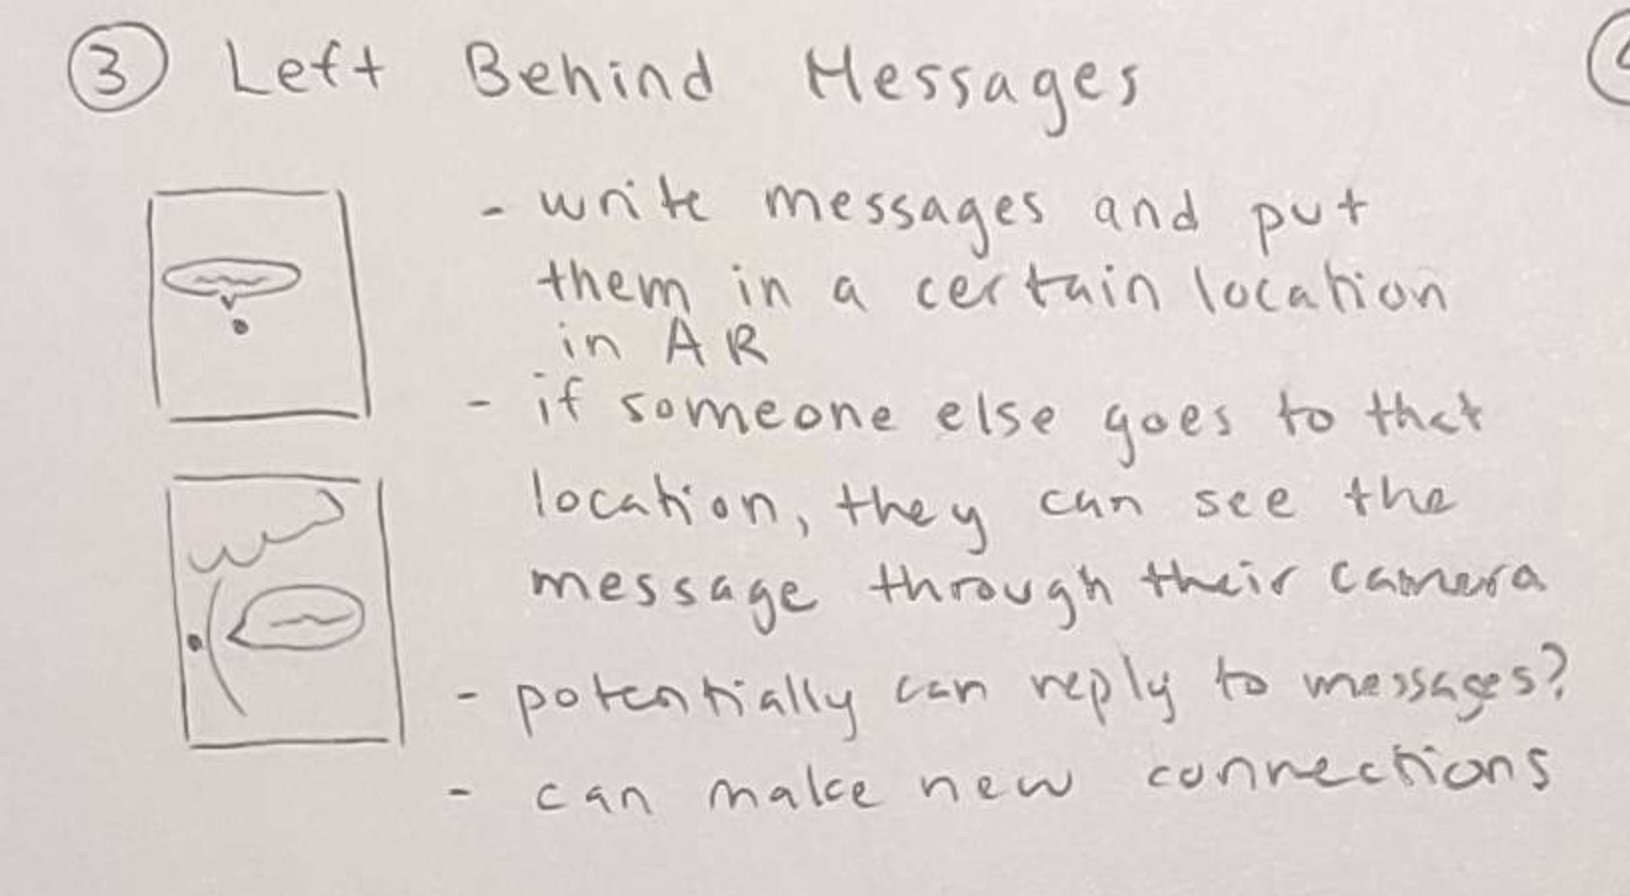 3 Left Behind Messages
- write messages and put
them in a certain location
in AR
- if someone else goes to that
location, they can see the
message through their camera
- potentially can reply to messages?
- can make new connections